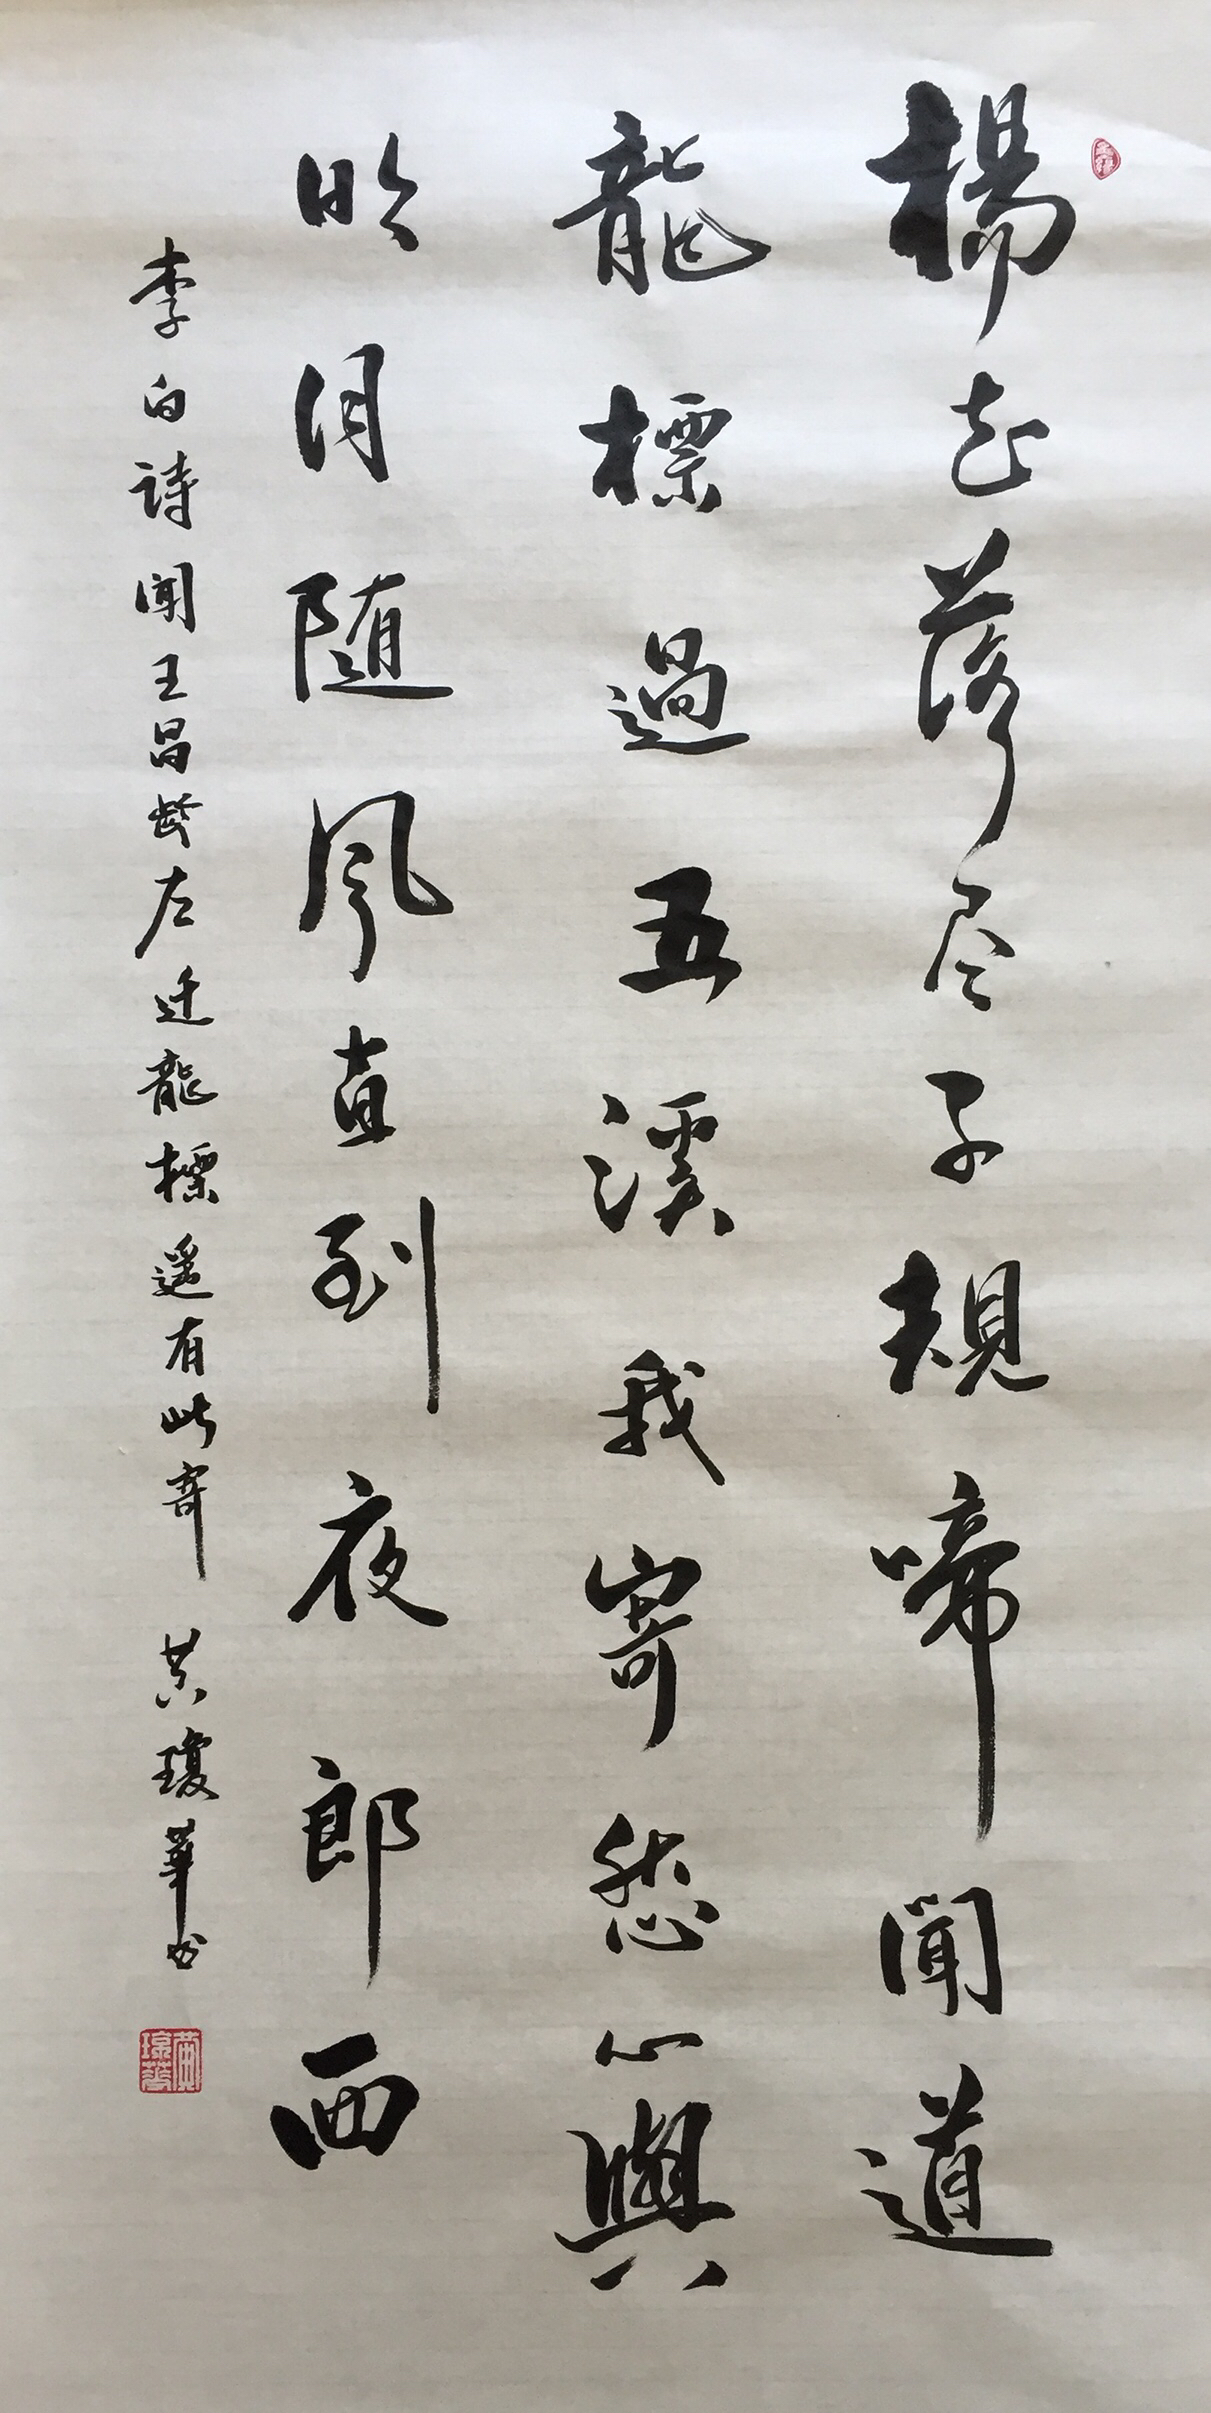 楊花落尽子規啼聞道
龍標過五溪我寄愁心與
明月随風直到夜郎西
李白詩聞王昌龄左迁龍標遥有此寄 黄瓊華书
黄琼華